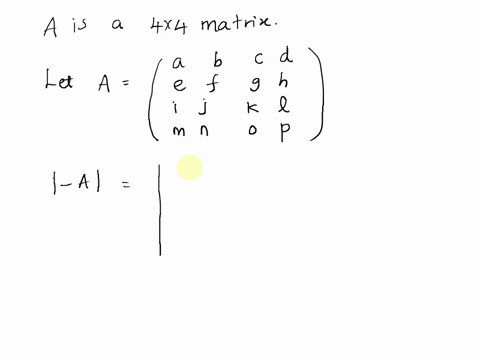 A is a 4x4 matrix.
Let A = ( a b c d
e f g h
i j k l
m n o p )
|-A| = |